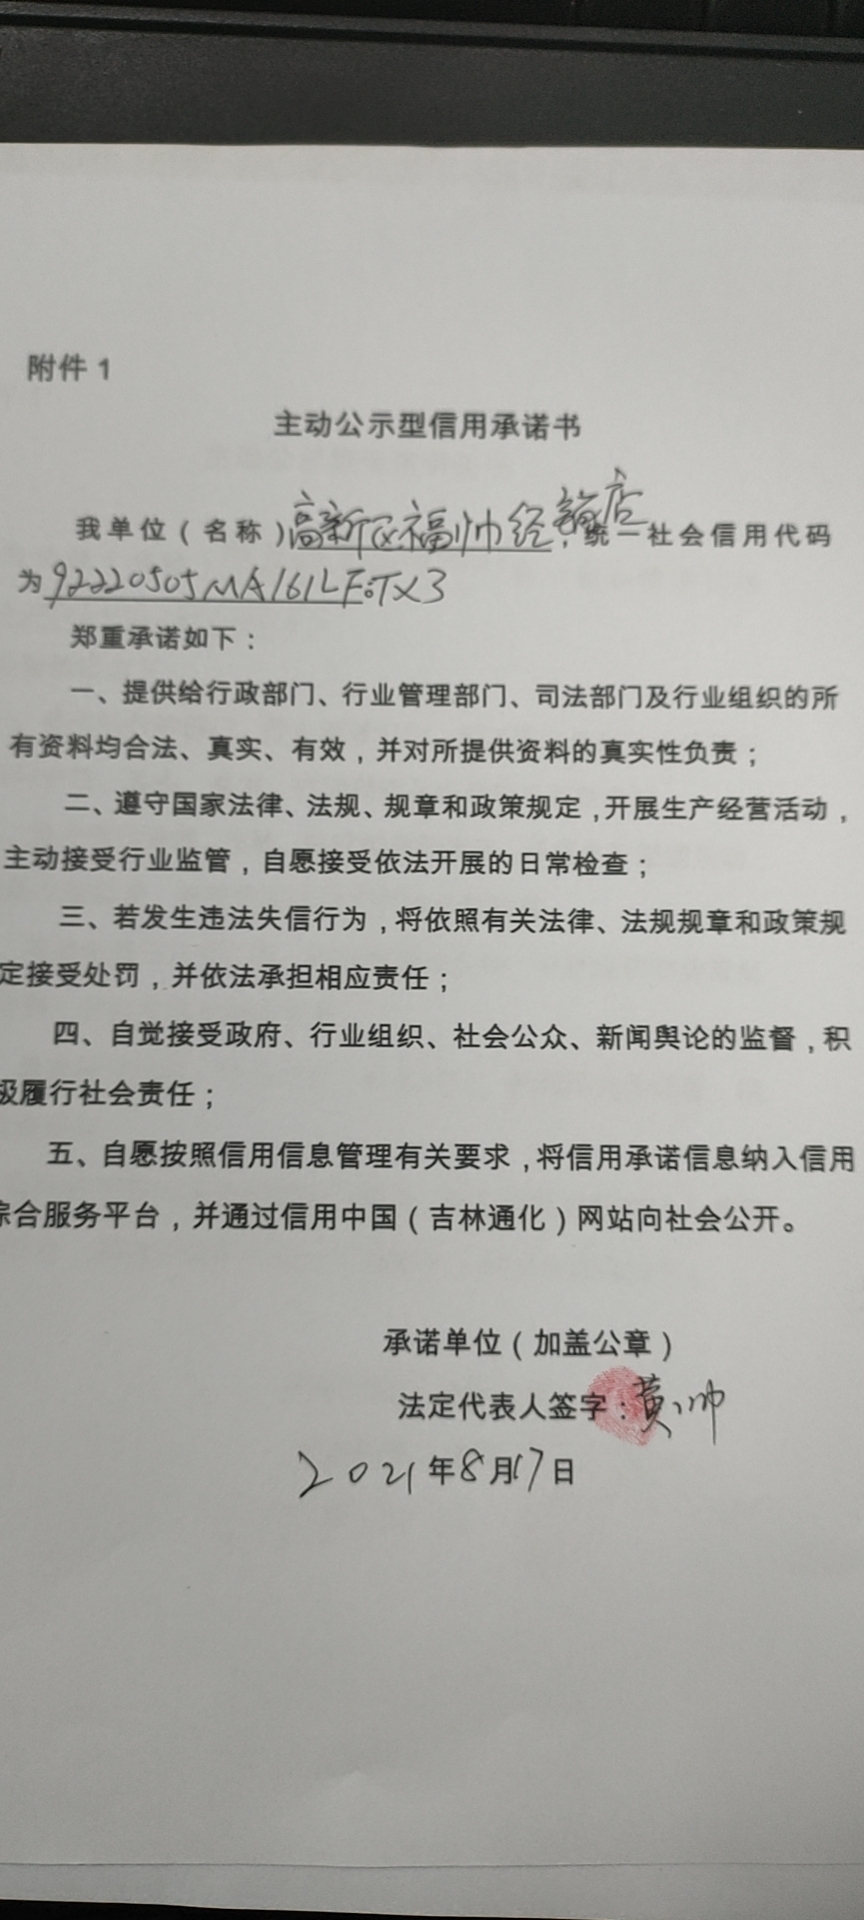 附件 1
主动公示型信用承诺书
我单位（名称）高新区福帅经销店，统一社会信用代码
为92220505MA161LF
郑重承诺如下：
一、提供给行政部门、行业管理部门、司法部门及行业组织的所
有资料均合法、真实、有效，并对所提供资料的真实性负责；
二、遵守国家法律、法规、规章和政策规定，开展生产经营活动，
主动接受行业监管，自愿接受依法开展的日常检查；
三、若发生违法失信行为，将依照有关法律、法规规章和政策规
定接受处罚，并依法承担相应责任；
四、自觉接受政府、行业组织、社会公众、新闻舆论的监督，积
极履行社会责任；
五、自愿按照信用信息管理有关要求，将信用承诺信息纳入信用
综合服务平台，并通过信用中国（吉林通化）网站向社会公开。
承诺单位（加盖公章）
法定代表人签字：黄帅
2021年8月17日